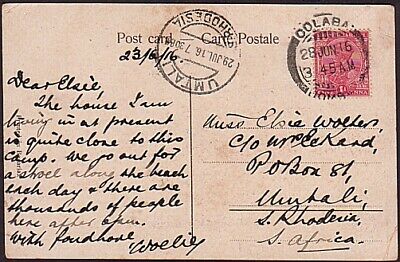 Post card
Carte Postale
23/6/16
Dear Elsie,
The house I am
living in at present
is quite close to this
camp. We go out for
a stroel along the beach
each day & there are
thousands of people
here after 6pm.
With fondlove
Woelie
UMTALI
28 JUL 16 7.30
RHODESIA
COLABA
28 JUN 16
45 AM
ANNA
Miss Elsie Woelfer
C/o
PO Box 81,
Umtali,
S. Rhodesia,
S. Africa.